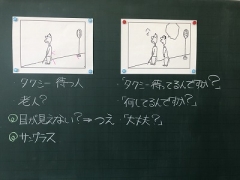 タクシー待つ人
老人?
目が見えない?⇒つえ
サングラス
・「タクシー待ってるんですか?」
「何してるんですか?」
「大丈夫?」